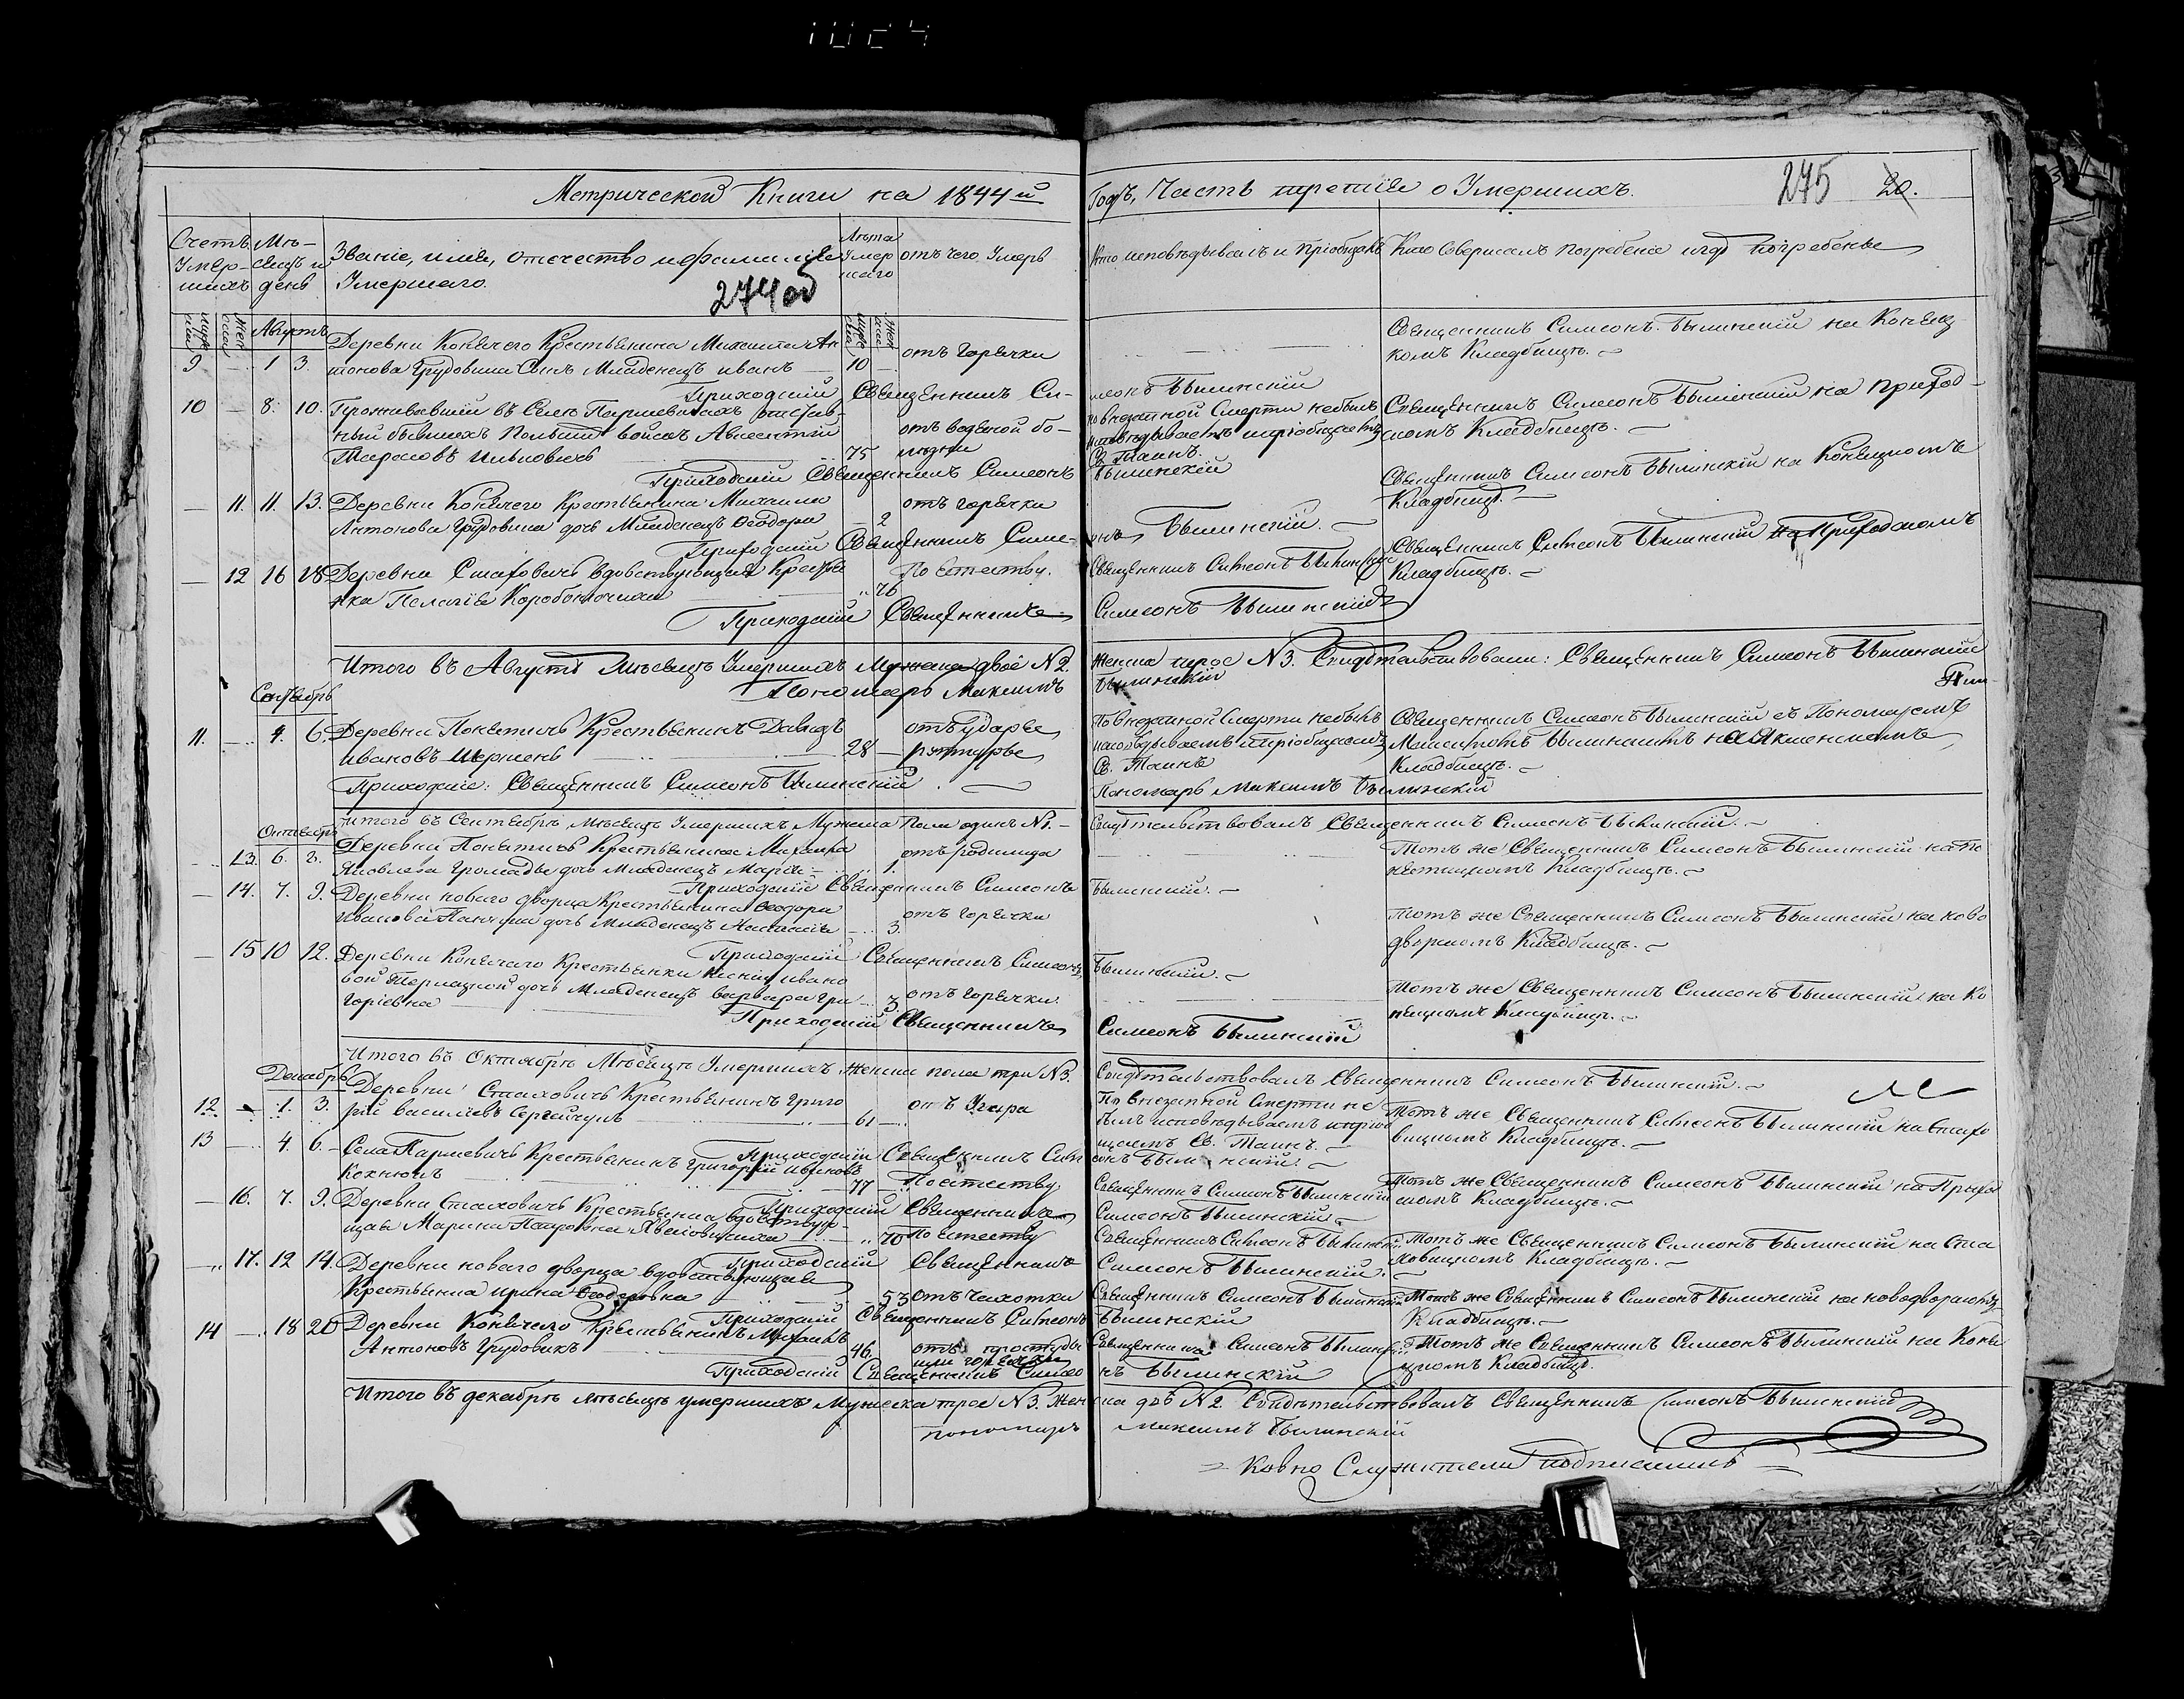 Метрической Книги на 1844й
Годъ, Часть третія о Умершихъ.
275
20.
Счетъ Умершихъ
Мѣсяцъ и день
Званіе, имя, отечество и фамилія
Умершаго.
274 об
Лѣта Умершаго
отъ чего Умеръ
Кто исповѣдывалъ и пріобщалъ
Кто Совершалъ погребеніе и гдѣ погребены
Августъ
9 — 1 3.
Деревни Конячего Крестьянина Михаила Ан
тонова Грудовика Сынъ Младенецъ иванъ
10
отъ Горячки
Священникъ Симеонъ Былинскій на Коняц
комъ Кладбищѣ.
Приходскій Священникъ Си-
меонъ Былинскій
10 — 8. 10.
Проживавшій въ Селѣ
ный бывшихъ Польшы войскъ
Тарасовъ
75
отъ водяной бо-
лѣзни
по внезапной Смерти небылъ
исповѣдываемъ и пріобщаемъ
Св. Таинъ.
Священникъ Симеонъ Былинскій на приход-
скомъ Кладбищѣ.
Приходскій Священникъ Симеонъ
Былинскій
— 11. 11. 13.
Деревни Конячего Крестьянина Михаила
Антонова Грудовика дочь Младенецъ Ѳеодора
2
отъ горячки
Священникъ Симеонъ Былинскій на Коняцкомъ
Кладбищѣ.
Приходскій Священникъ Симе-
онъ Былинскій.
— 12 16 18
Деревни Стаховичъ вдовствующая Крестья
нка Пелагія
76
По Естеству.
Священникъ Симеонъ Былинскій
Священникъ Симеонъ Былинскій на Приходскомъ
Кладбищѣ.
Приходскій Священникъ
Симеонъ Былинскій
Итого въ Августѣ Мѣсяцѣ Умершихъ Мужеска двое N2.
Женска трое N3. Свидѣтельствовали: Священникъ Симеонъ Былинскій
Пономарь Максимъ
Былинскій
Сентябрь
11. — 4. 6.
Деревни Крестьянинъ Давидъ
Ивановъ
28
отъ удара
По внезапной Смерти небылъ
исповѣдываемъ и пріобщаемъ
Св. Таинъ
Священникъ Симеонъ Былинскій съ Пономаремъ
Максимомъ Былинскимъ на
Кладбищѣ.
Приходскіе: Священникъ Симеонъ Былинскій.
Пономарь Максимъ Былинскій
Итого въ Сентябрѣ Мѣсяцѣ Умершихъ Мужеска Пола одинъ N1.
Свидѣтельствовалъ Священникъ Симеонъ Былинскій.
Октябрь
13. 6. 8.
Деревни Крестьянина Михаила
Яковлева дочь Младенецъ Марія
1.
отъ родимца
Тотъ же Священникъ Симеонъ Былинскій на По
Кладбищѣ.
Приходскій Священникъ Симеонъ
Былинскій.
— 14. 7. 9.
Деревни новаго дворца Крестьянина Ѳеодора
Иванова дочь Младенецъ
3.
отъ Горячки
тотъ же Священникъ Симеонъ Былинскій на ново
дворномъ Кладбищѣ.
Приходскій Священникъ Симеонъ
Былинскій.
— 15 10 12.
Деревни Конячаго Крестьянки Ксеніи ивано
вой дочь Младенецъ варвара Гри
горіевна
3
отъ Горячки
Тотъ же Священникъ Симеонъ Былинскій на Ко
няцкомъ Кладбищѣ.
Приходскій Священникъ
Симеонъ Былинскій
Итого въ Октябрѣ Мѣсяцѣ Умершихъ Женска пола три N3.
Свидѣтельствовалъ Священникъ Симеонъ Былинскій.
Декабрь
12 — 1. 3.
Деревни Стаховичъ Крестьянинъ Григо
рій Василіевъ
61
отъ Угара
По внезапной Смерти не
былъ исповѣдываемъ и пріоб
щаемъ Св. Таинъ.
Тотъ же Священникъ Симеонъ Былинскій на Стахо
вицкомъ Кладбищѣ.
Приходскій Священникъ Симе
онъ Былинскій.
13 — 4. 6.
Села Крестьянинъ Григорій Ивановъ
77
По естеству
Священникъ Симеонъ Былинскій
Тотъ же Священникъ Симеонъ Былинскій на Приход
скомъ Кладбищѣ.
Приходскій Священникъ
Симеонъ Былинскій.
— 16. 7. 9.
Деревни Стаховичъ Крестьянка вдовствую
щая Марина
70
По естеству
Священникъ Симеонъ Былинскій
Тотъ же Священникъ Симеонъ Былинскій на Ста
ховицкомъ Кладбищѣ.
Приходскій Священникъ
Симеонъ Былинскій.
— 17. 12 14.
Деревни новаго дворца вдовствующая
Крестьянка ирина Ѳеодоровна
53
отъ Чахотки
Священникъ Симеонъ Былинскій
Тотъ же Священникъ Симеонъ Былинскій на новодворномъ
Кладбищѣ.
Приходскій Священникъ Симеонъ
Былинскій
14 — 18 20
Деревни Конячего Крестьянинъ Михаилъ
Антоновъ Грудовикъ
46.
отъ простуды
или горячки
Священникъ Симеонъ Былинскій
Тотъ же Священникъ Симеонъ Былинскій на Коня
цкомъ Кладбищѣ.
Приходскій Священникъ Симео
нъ Былинскій
Итого въ декабрѣ мѣсяцѣ умершихъ Мужеска трое N3. Жен
ска двѣ N2 Свидѣтельствовалъ Священникъ Симеонъ Былинскій
пономарь
Максимъ Былинскій